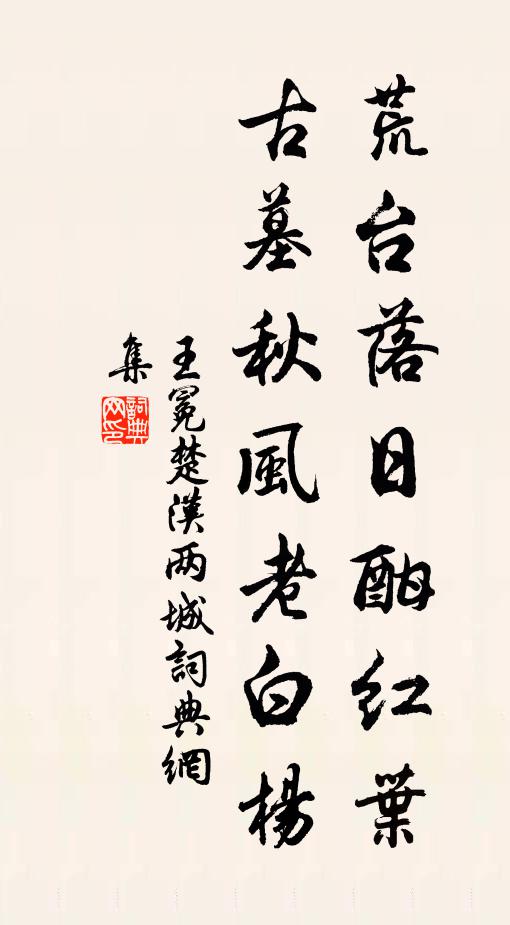 荒台落日酣红葉
古墓秋風老白楊
王冕楚漢两城詞典網
集
詞典网印